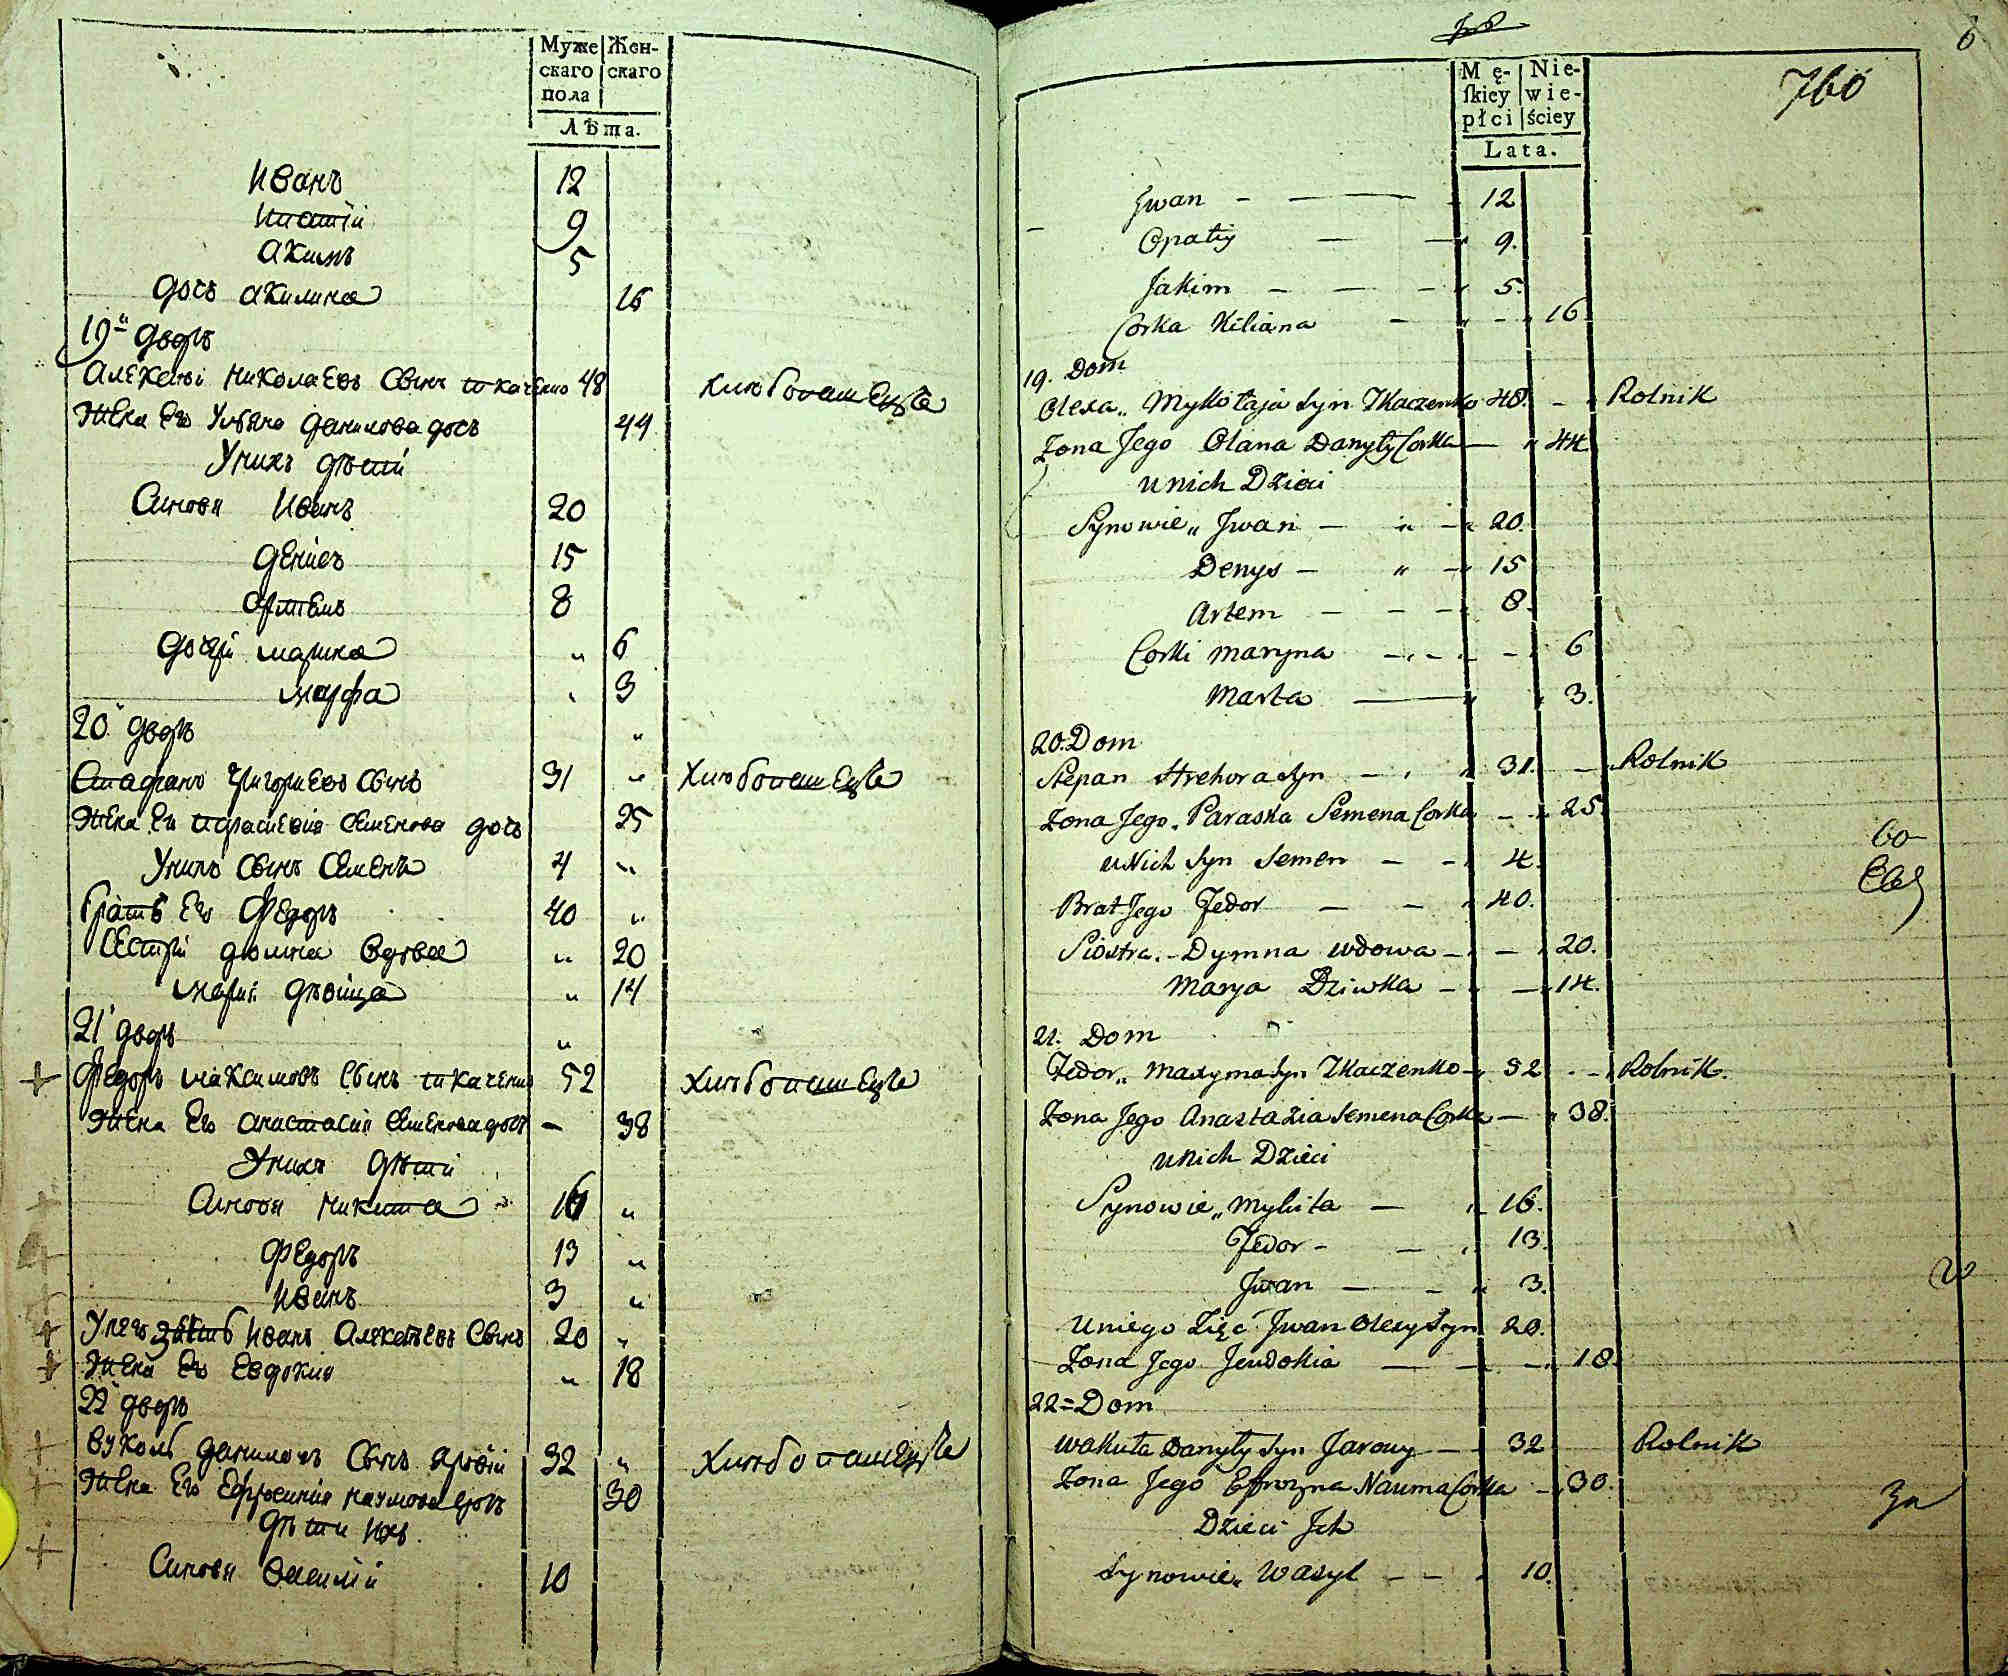 Муже Жен-
скаго скаго
пола
Лѣта.
Иванъ 12
Ипатій 9
Акимъ 5
дочь Акилина 16
19й дворъ
Алексѣй Николаевъ сынъ Ткаченко 48 хлѣбопашецъ
Жена его Ульяна Данилова дочь 44
У нихъ дѣти
Синовя Иванъ 20
Денисъ 15
Артемъ 8
дочери Марина " 6
Марфа " 3
20 дворъ "
Стефанъ Григориевъ сынъ 31 " хлѣбопашецъ
Жена ей Параскевия Семенова дочь 25
У нихъ сынъ Семенъ 4 "
Братъ его Федоръ 40 "
Сестри Домна вдова " 20
Мария дѣвица " 14
21 дворъ "
Федоръ Максимовъ сынъ Ткаченко 52 хлѣбопашецъ
Жена его Анастасия Семенова дочь - 38
У нихъ дѣти
Синовя Никита 16 "
Федоръ 13 "
Иванъ 3 "
У него зять Иванъ Алексѣевъ сынъ 20 "
Жена его Евдокия " 18
22 дворъ
Вуколъ Даниловъ сынъ Яровій 32 " хлѣбопашецъ
Жена его Ефросиния Наумова дочь 30
Дѣти ихъ
Синовя Василій 10
6
760
Mę- Nie-
ſkiey wie-
płci ściey
Lata.
Jwan - - - 12
Opatiy - - " 9.
Jakim - - - " 5.
Corka Kiliana - " - " 16
19. Dom
Olexa „ Mykołaja Syn Tkaczenko 48. - " Rolnik
Zona Jego Olana Danyły Corka - " 44
u Nich Dzieci
Synowie „ Jwan - " - " 20.
Denys - " - " 15
Artem - - - 8.
Corki Maryna - . - . - . 6
Marta - " " 3.
20. Dom
Stepan Hrehora Syn - . " 31. - Rolnik
Zona Jego. Paraska Semena Corka - - " 25.
u Nich Syn Semen - - . 4.
Brat Jego Fedor - - . 40.
Siostra. - Dymna wdowa - . - 20.
Marya Dziwka - . - " 14.
21. Dom
Fedor „ Maxyma Syn Tkaczenko - 52 . - Rolnik.
Zona Jego Anastazia Semena Corka - " 38.
u Nich Dzieci
Synowie „ Mykita - " 16.
Fedor - - . 13.
Jwan - - " 3.
u niego Zięć Jwan Olexy Syn 20.
Zona Jego Jewdokia - - - . 18.
22 = Dom
Wakuła Danyły Syn Jarowy - - 32 Rolnik
Zona Jego Effrozyna Nauma Corka - . 30.
Dzieci Jch
Synowie „ Wasyl - - . 10.